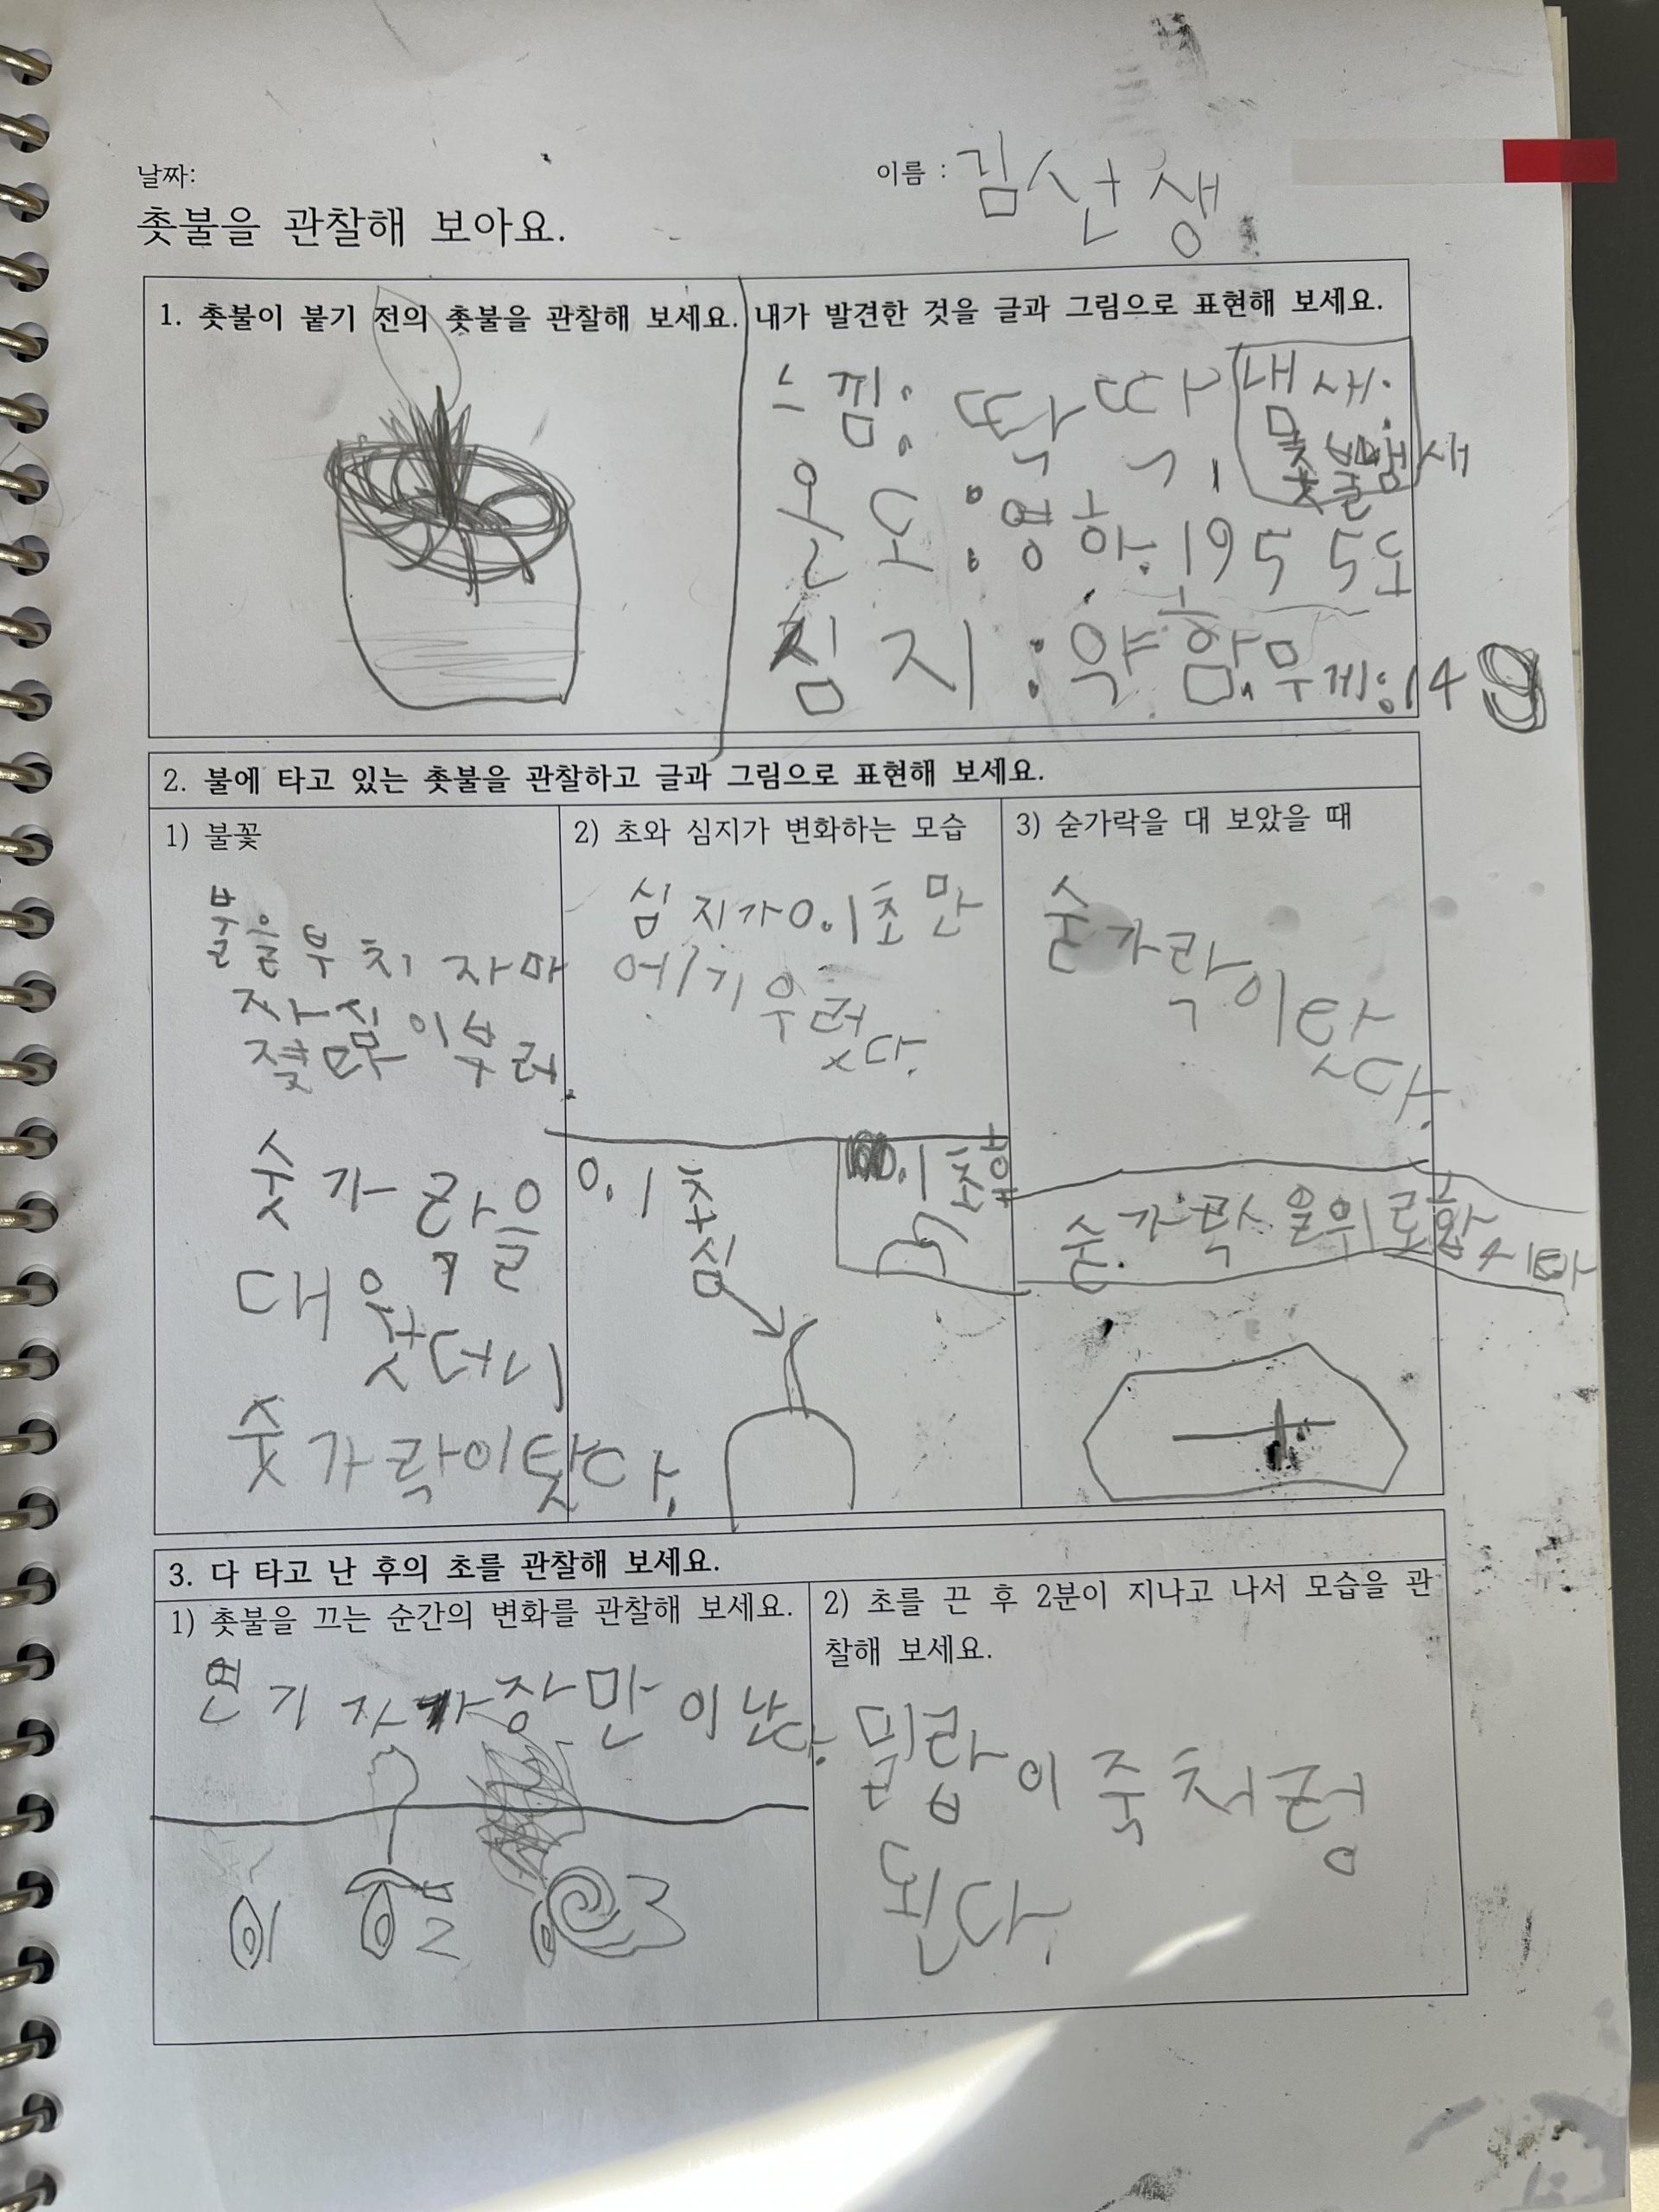 날짜:
이름 : 김선생
촛불을 관찰해 보아요.
1. 촛불이 붙기 전의 촛불을 관찰해 보세요. 내가 발견한 것을 글과 그림으로 표현해 보세요.
느낌: 딱딱
냄새:
온도:영하.195 5도
심지:약함, 무게:14g
2. 불에 타고 있는 촛불을 관찰하고 글과 그림으로 표현해 보세요.
1) 불꽃
불을부치자마
자심
이부러.
숫가락을
대왓더니
숫가락이탓다.
2) 초와 심지가 변화하는 모습
심지가0.1초만
에기우렀다.
0.1초
심
0.1초후
3) 숟가락을 대 보았을 때
숟가락이탓다.
숟가락을위로
3. 다 타고 난 후의 초를 관찰해 보세요.
1) 촛불을 끄는 순간의 변화를 관찰해 보세요.
연기 장만이난다.
1 2 3
2) 초를 끈 후 2분이 지나고 나서 모습을 관
찰해 보세요.
밀랍이죽처렁
된다.